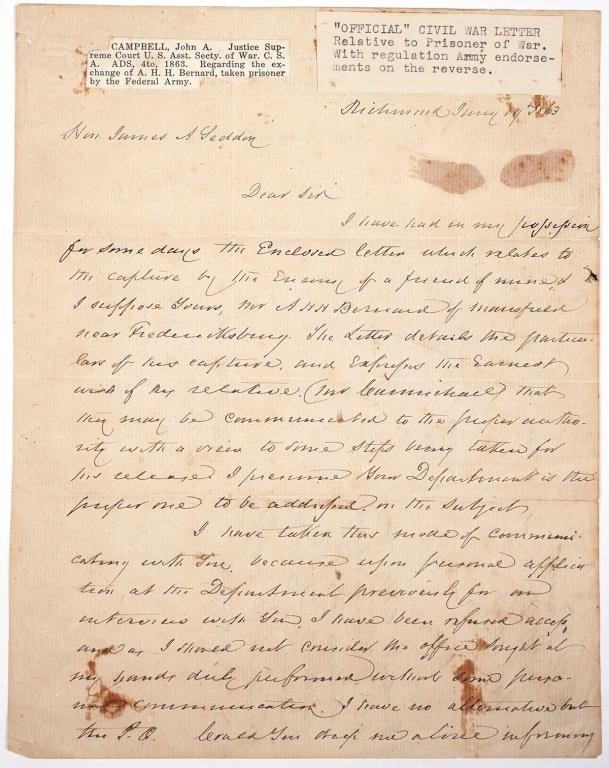 CAMPBELL, John A. Justice Sup-
reme Court U. S. Asst. Secty. of War. C. S.
A. ADS, 4to, 1863. Regarding the ex-
change of A. H. H. Bernard, taken prisoner
by the Federal Army.
"OFFICIAL" CIVIL WAR LETTER
Relative to Prisoner of War.
With regulation Army endorse-
ments on the reverse.
Richmond Jany 19 1863
Hon James A Seddon
Dear Sir
I have had in my possession
for some days the Enclosed letter which relates to
the capture by the Enemy of a friend of mine &
I suppose Yours, Mr A H H Bernard of Mansfield
near Fredericksburg. The Letter details the particu-
lars of his capture, and Expresses the Earnest
wish of his relative (Mrs Carmichael) that
they may be communicated to the proper autho-
rity with a view to some steps being taken for
his release. I presume Your Department is the
proper one to be addressed on the subject
I have taken this mode of communi-
cating with You, because upon personal applica
tion at the Department previously for an
interview with You, I have been refused access,
and as I should not consider the office sought at
my hands duly performed without some perso-
nal communication. I have no alternative but
the P. O. Could You drop me a line informing